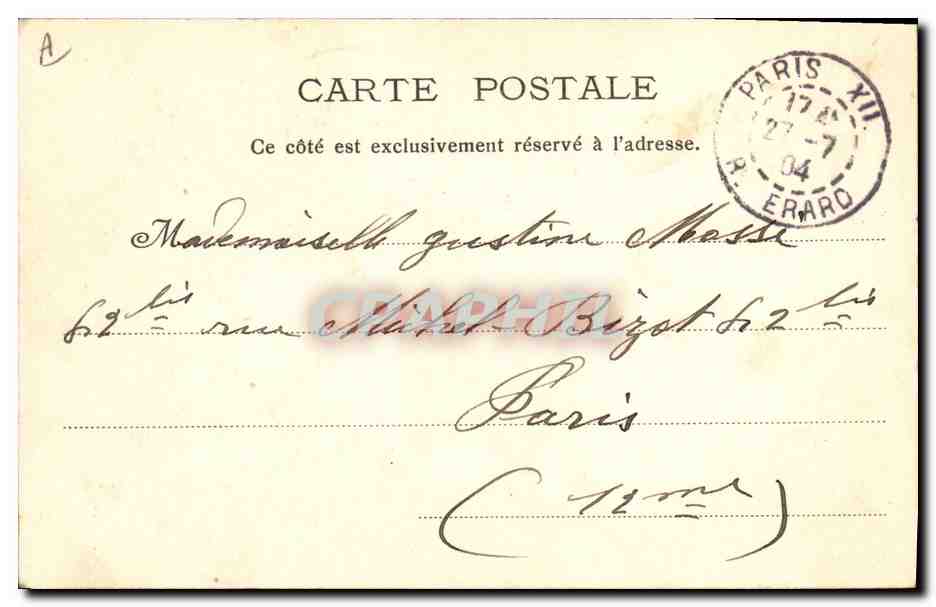 A
CARTE POSTALE
Ce côté est exclusivement réservé à l'adresse.
PARIS XII.
27 -7
04
R. ERARD
Mademoiselle Justine Mosse
62 bis rue Michel-Bizot 62 bis
Paris
(12me)
CPAPHIL